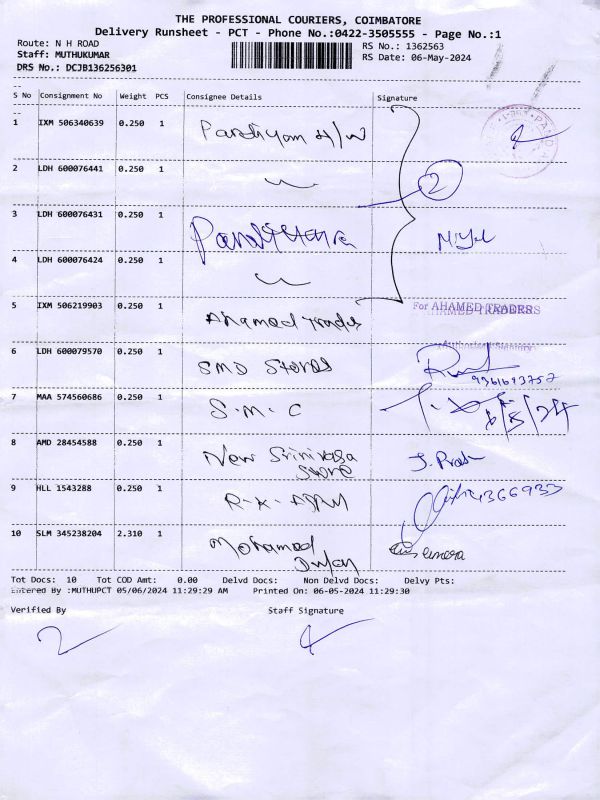 THE PROFESSIONAL COURIERS, COIMBATORE
Delivery Runsheet - PCT - Phone No.:0422-3505555 - Page No.:1
Route: N H ROAD
RS No.: 1362563
Staff: MUTHUKUMAR
RS Date: 06-May-2024
DRS No.: DCJB136256301
S No Consignment No Weight PCS Consignee Details Signature
1 IXM 506340639 0.250 1
2 LDH 600076441 0.250 1
2
3 LDH 600076431 0.250 1
4 LDH 600076424 0.250 1
5 IXM 506219903 0.250 1 Ahamed Traders
For AHAMED TRADERS
6 LDH 600079570 0.250 1 SMD Stores
9361613757
7 MAA 574560686 0.250 1 S.M.C
6/5/24
8 AMD 28454588 0.250 1 New Srinivasa
Store
9 HLL 1543288 0.250 1
10 SLM 345238204 2.310 1 Mohamed
Tot Docs: 10 Tot COD Amt: 0.00 Delvd Docs: Non Delvd Docs: Delvy Pts:
Entered By :MUTHUPCT 05/06/2024 11:29:29 AM Printed On: 06-05-2024 11:29:30
Verified By Staff Signature